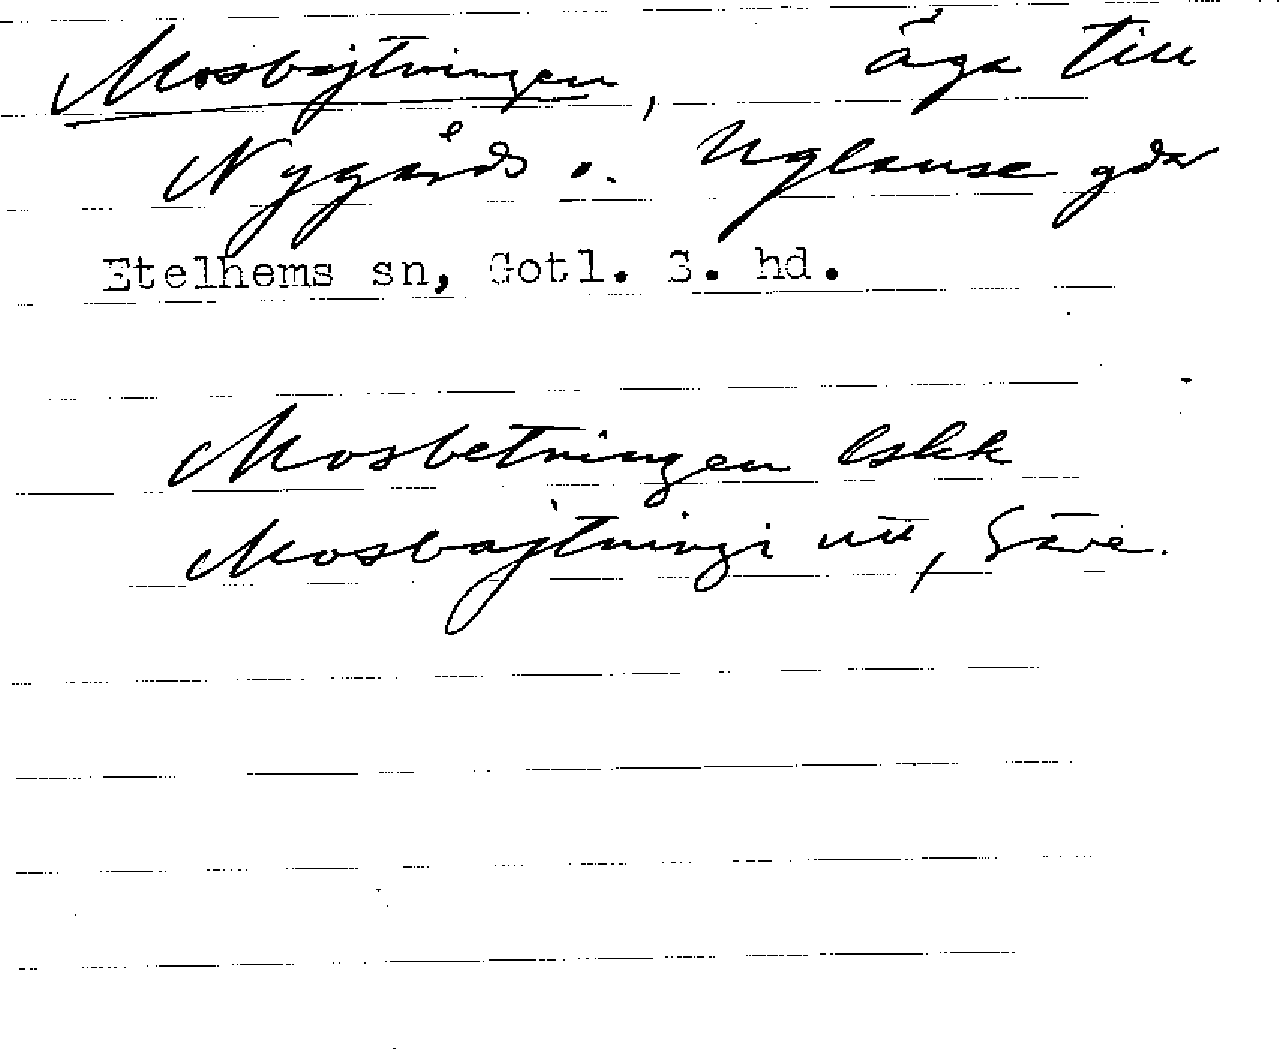 Mosbajtningen, äga till
Nygårds o. Uglause gdar
Etelhems sn, Gotl. S. hd.
Mosbetningen lskk
Mosbajtningi utt, Säve.